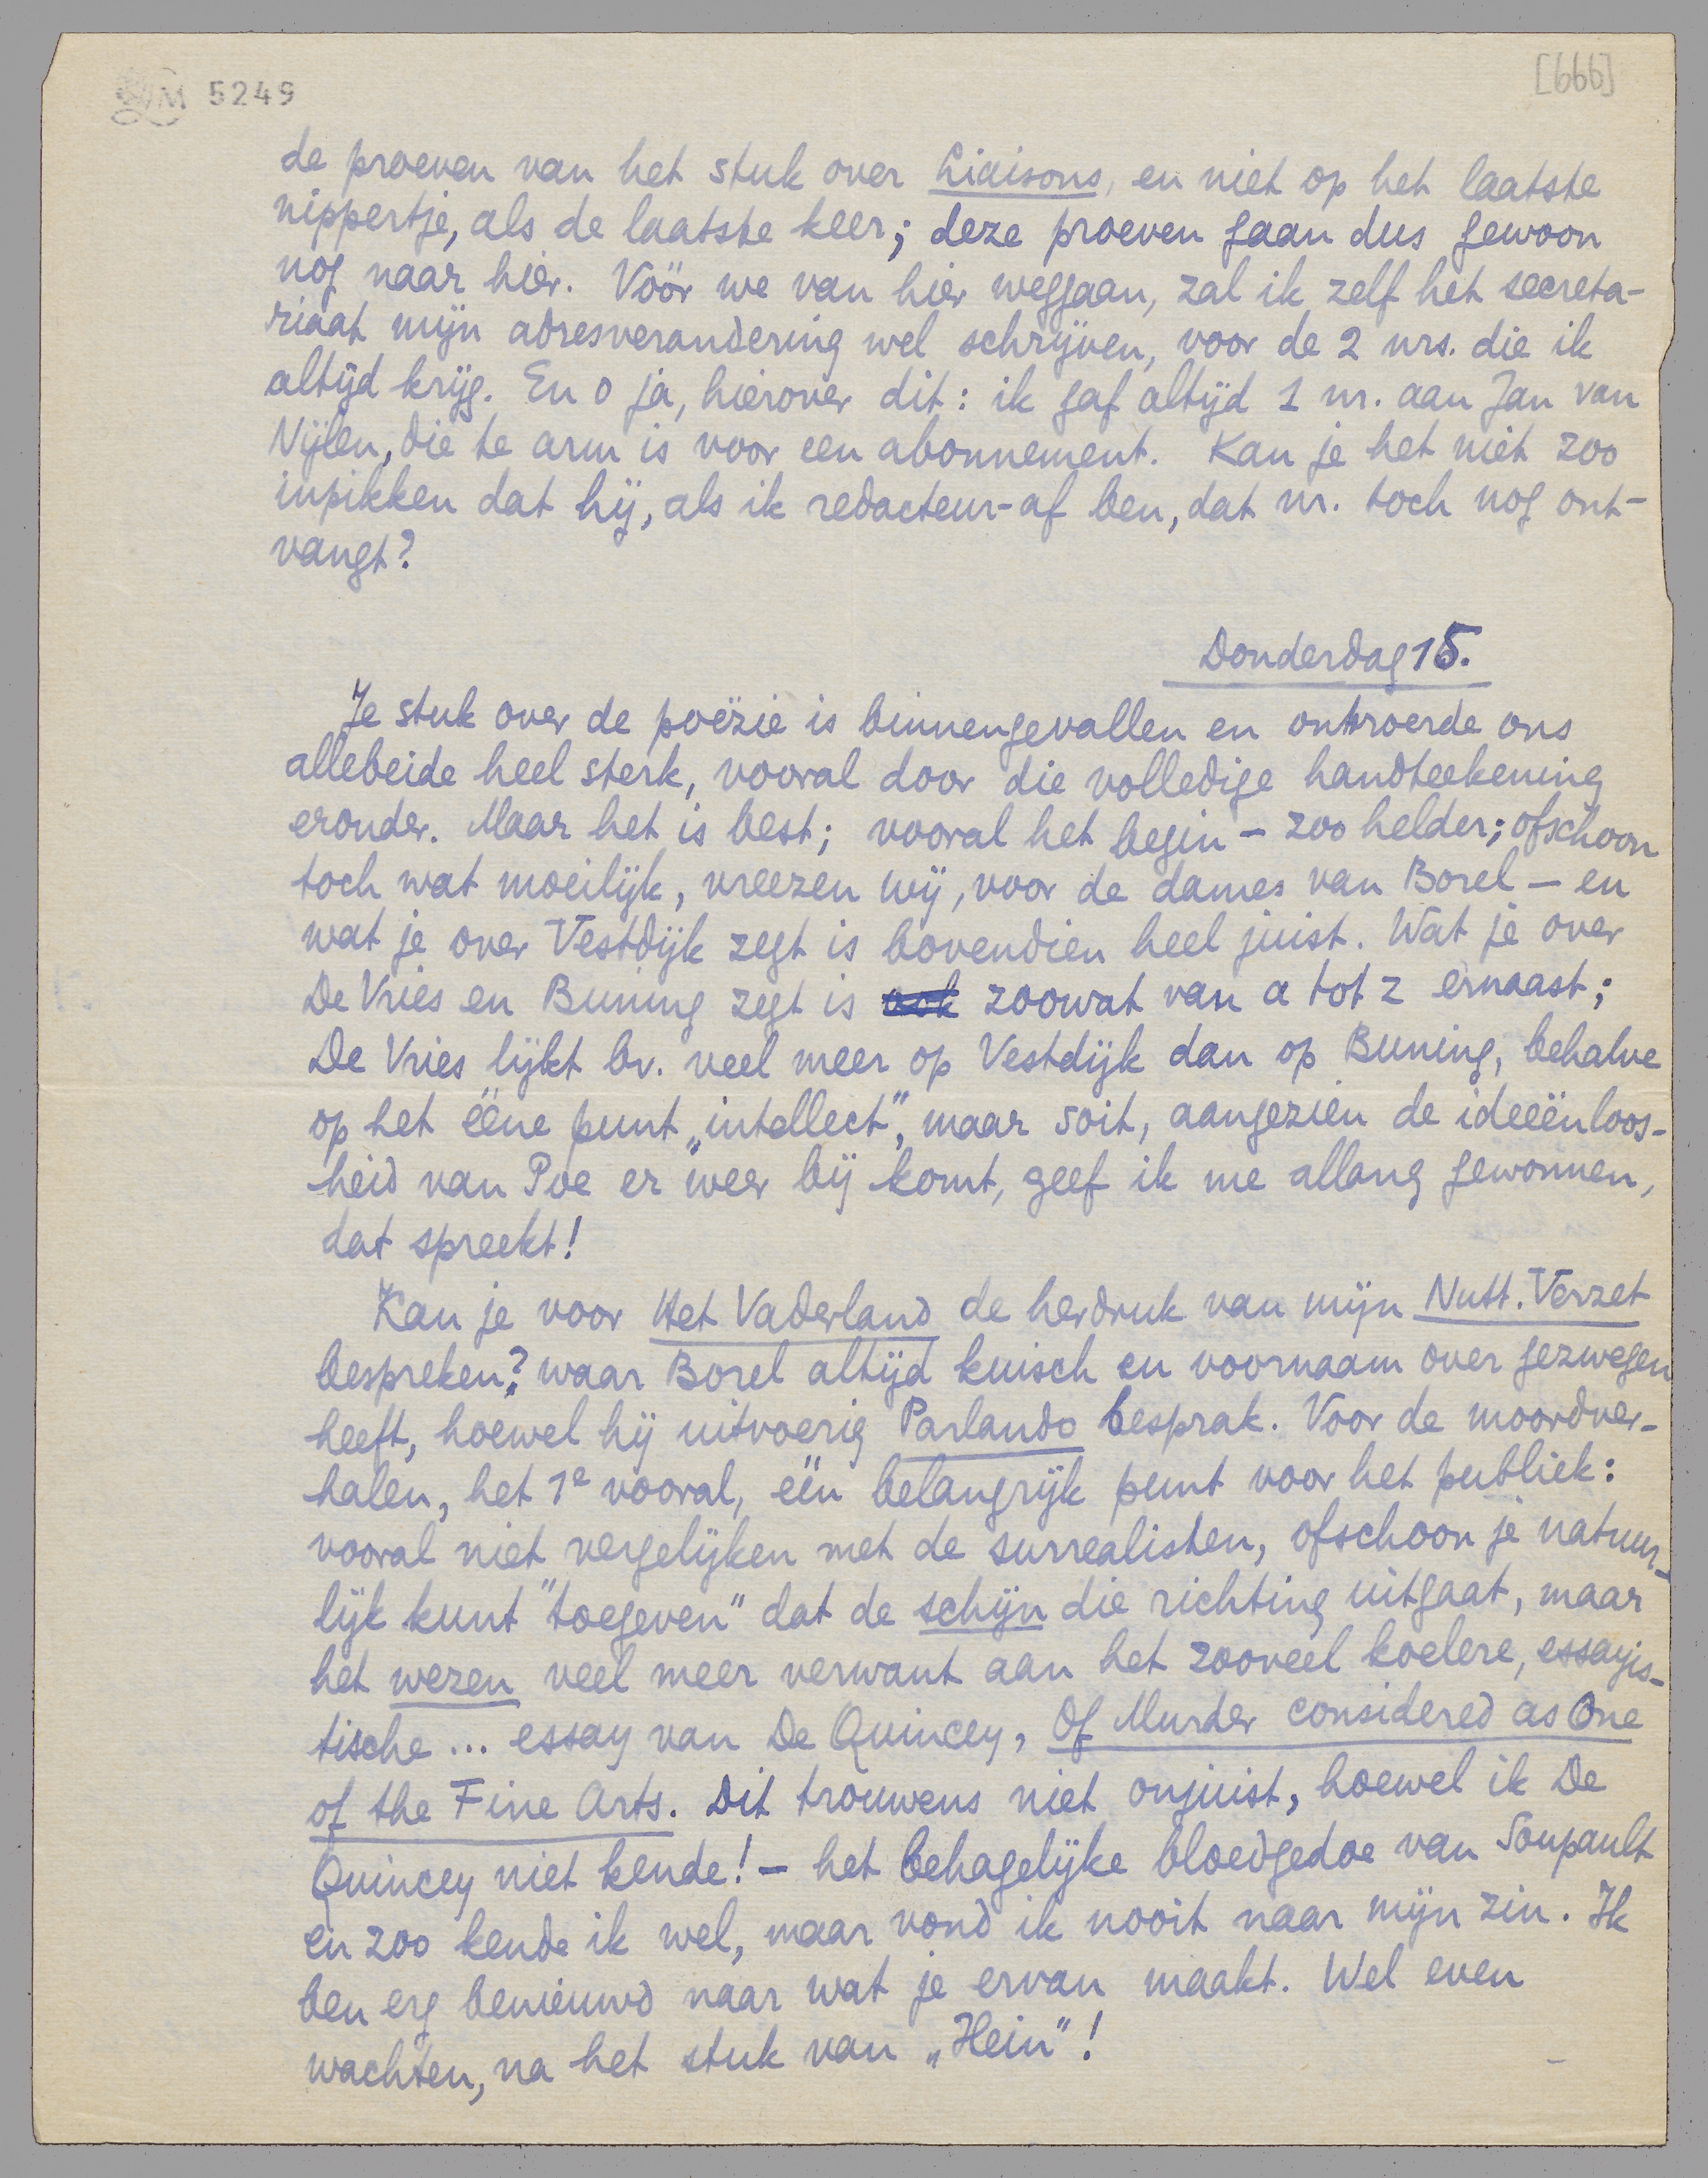 M 5249
[666]
de proeven van het stuk over Liaisons, en niet op het laatste
nippertje, als de laatste keer; deze proeven gaan dus gewoon
nog naar hier. Vóór we van hier weggaan, zal ik zelf het secreta-
riaat mijn adresverandering wel schrijven, voor de 2 nrs. die ik
altijd krijg. En o ja, hierover dit: ik gaf altijd 1 nr. aan Jan van
Nijlen, die te arm is voor een abonnement. Kan je het niet zoo
inpikken dat hij, als ik redacteur-af ben, dat nr. toch nog ont-
vangt?
Donderdag 15.
Je stuk over de poëzie is binnengevallen en ontroerde ons
allebeide heel sterk, vooral door die volledige handteekening
eronder. Maar het is best; vooral het begin – zoo helder; ofschoon
toch wat moeilijk, vreezen wij, voor de dames van Borel – en
wat je over Vestdijk zegt is bovendien heel juist. Wat je over
De Vries en Buning zegt is ook zoowat van a tot z ernaast;
De Vries lijkt bv. veel meer op Vestdijk dan op Buning, behalve
op het ééne punt „intellect", maar soit, aangezien de ideeënloos-
heid van Poe er weer bij komt, geef ik me allang gewonnen,
dat spreekt!
Kan je voor Het Vaderland de herdruk van mijn Nutt. Verzet
bespreken? waar Borel altijd kuisch en voornaam over gezwegen
heeft, hoewel hij uitvoerig Parlando besprak. Voor de moordver-
halen, het 1e vooral, één belangrijk punt voor het publiek:
vooral niet vergelijken met de surrealisten, ofschoon je natuur-
lijk kunt "toegeven" dat de schijn die richting uitgaat, maar
het wezen veel meer verwant aan het zooveel koelere, essayis-
tische ... essay van De Quincey, Of Murder considered as One
of the Fine Arts. Dit trouwens niet onjuist, hoewel ik De
Quincey niet kende! – het behagelijke bloedgedoe van Soupault
en zoo kende ik wel, maar vond ik nooit naar mijn zin. Ik
ben erg benieuwd naar wat je ervan maakt. Wel even
wachten, na het stuk van „Hein"!